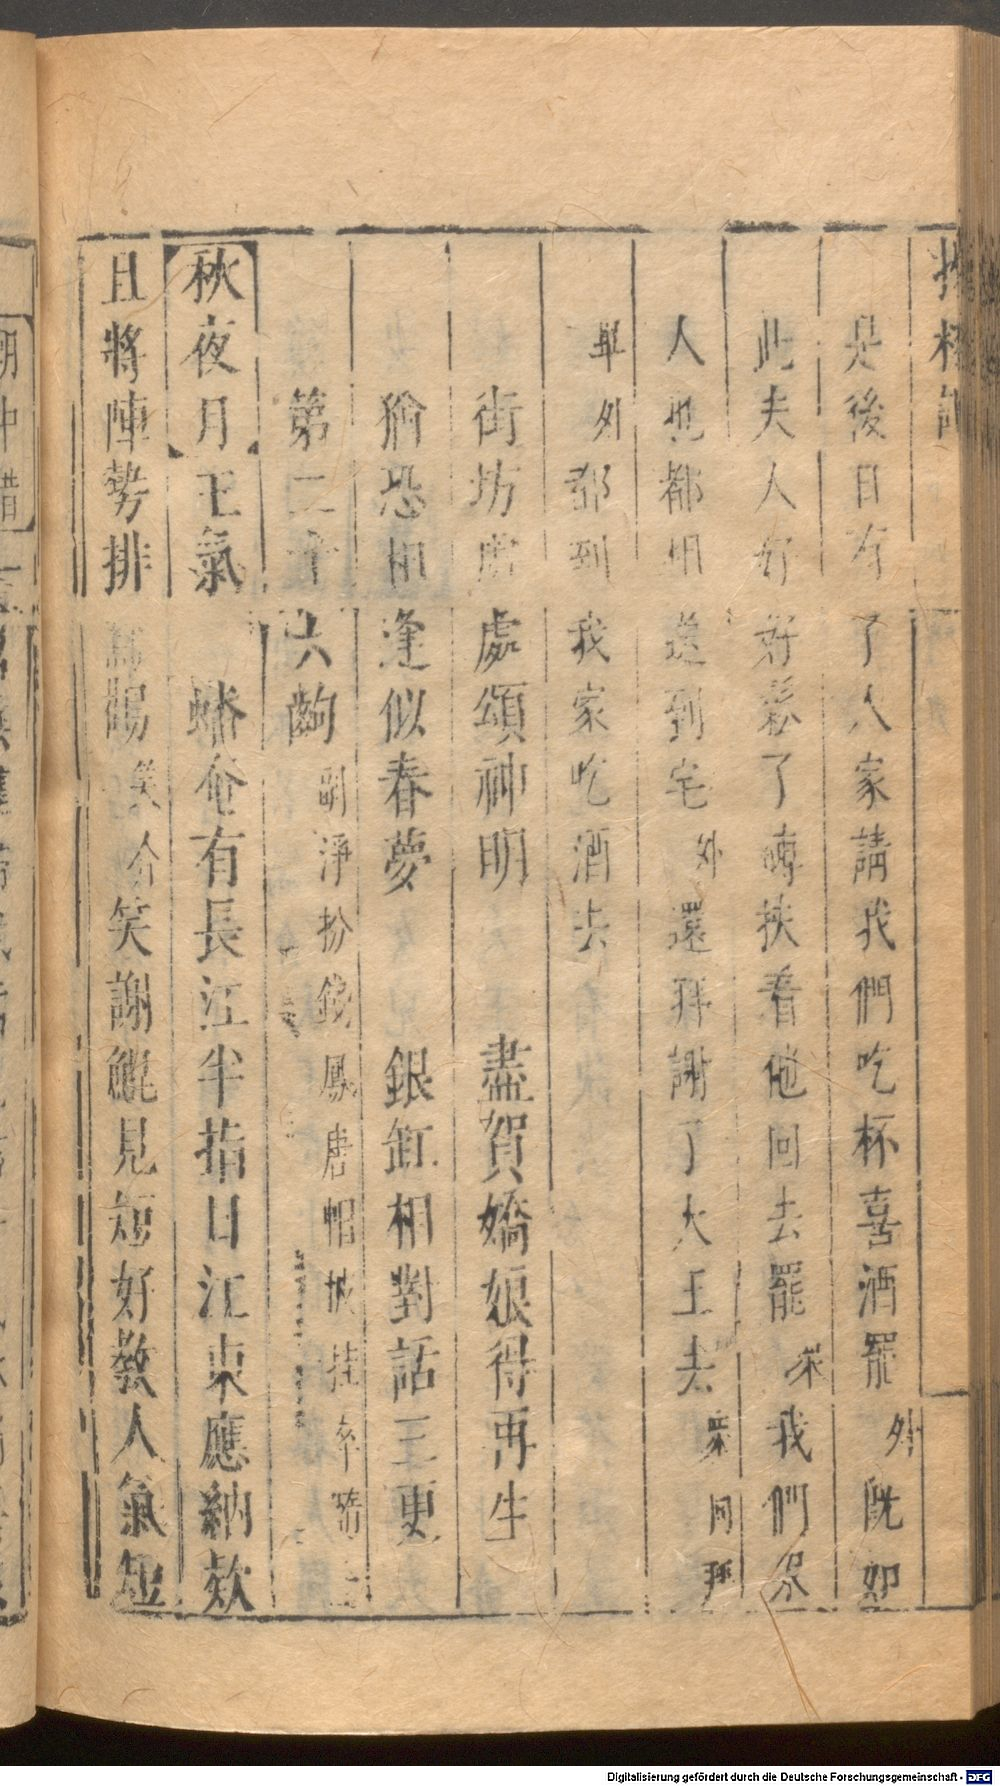 是後日有了人家請我們吃杯喜酒罷外既如
此夫人好好鬆了轎扶看他回去罷衆我們保
人也都相送到宅外還拜謝了大王去衆同拜
外都到我家吃酒去
街坊處處頌神明　盡賀嬌娘得再生
猶恐相逢似春夢　銀缸相對話三更
第二十六齣副淨扮鋭鳳唐帽披挂卒隨上
秋夜月王氣蟠俺有長江半指日江東應納欵
且將陣勢排笑介笑謝鯤見短好教人氣短
Digitalisierung gefördert durch die Deutsche Forschungsgemeinschaft - DFG